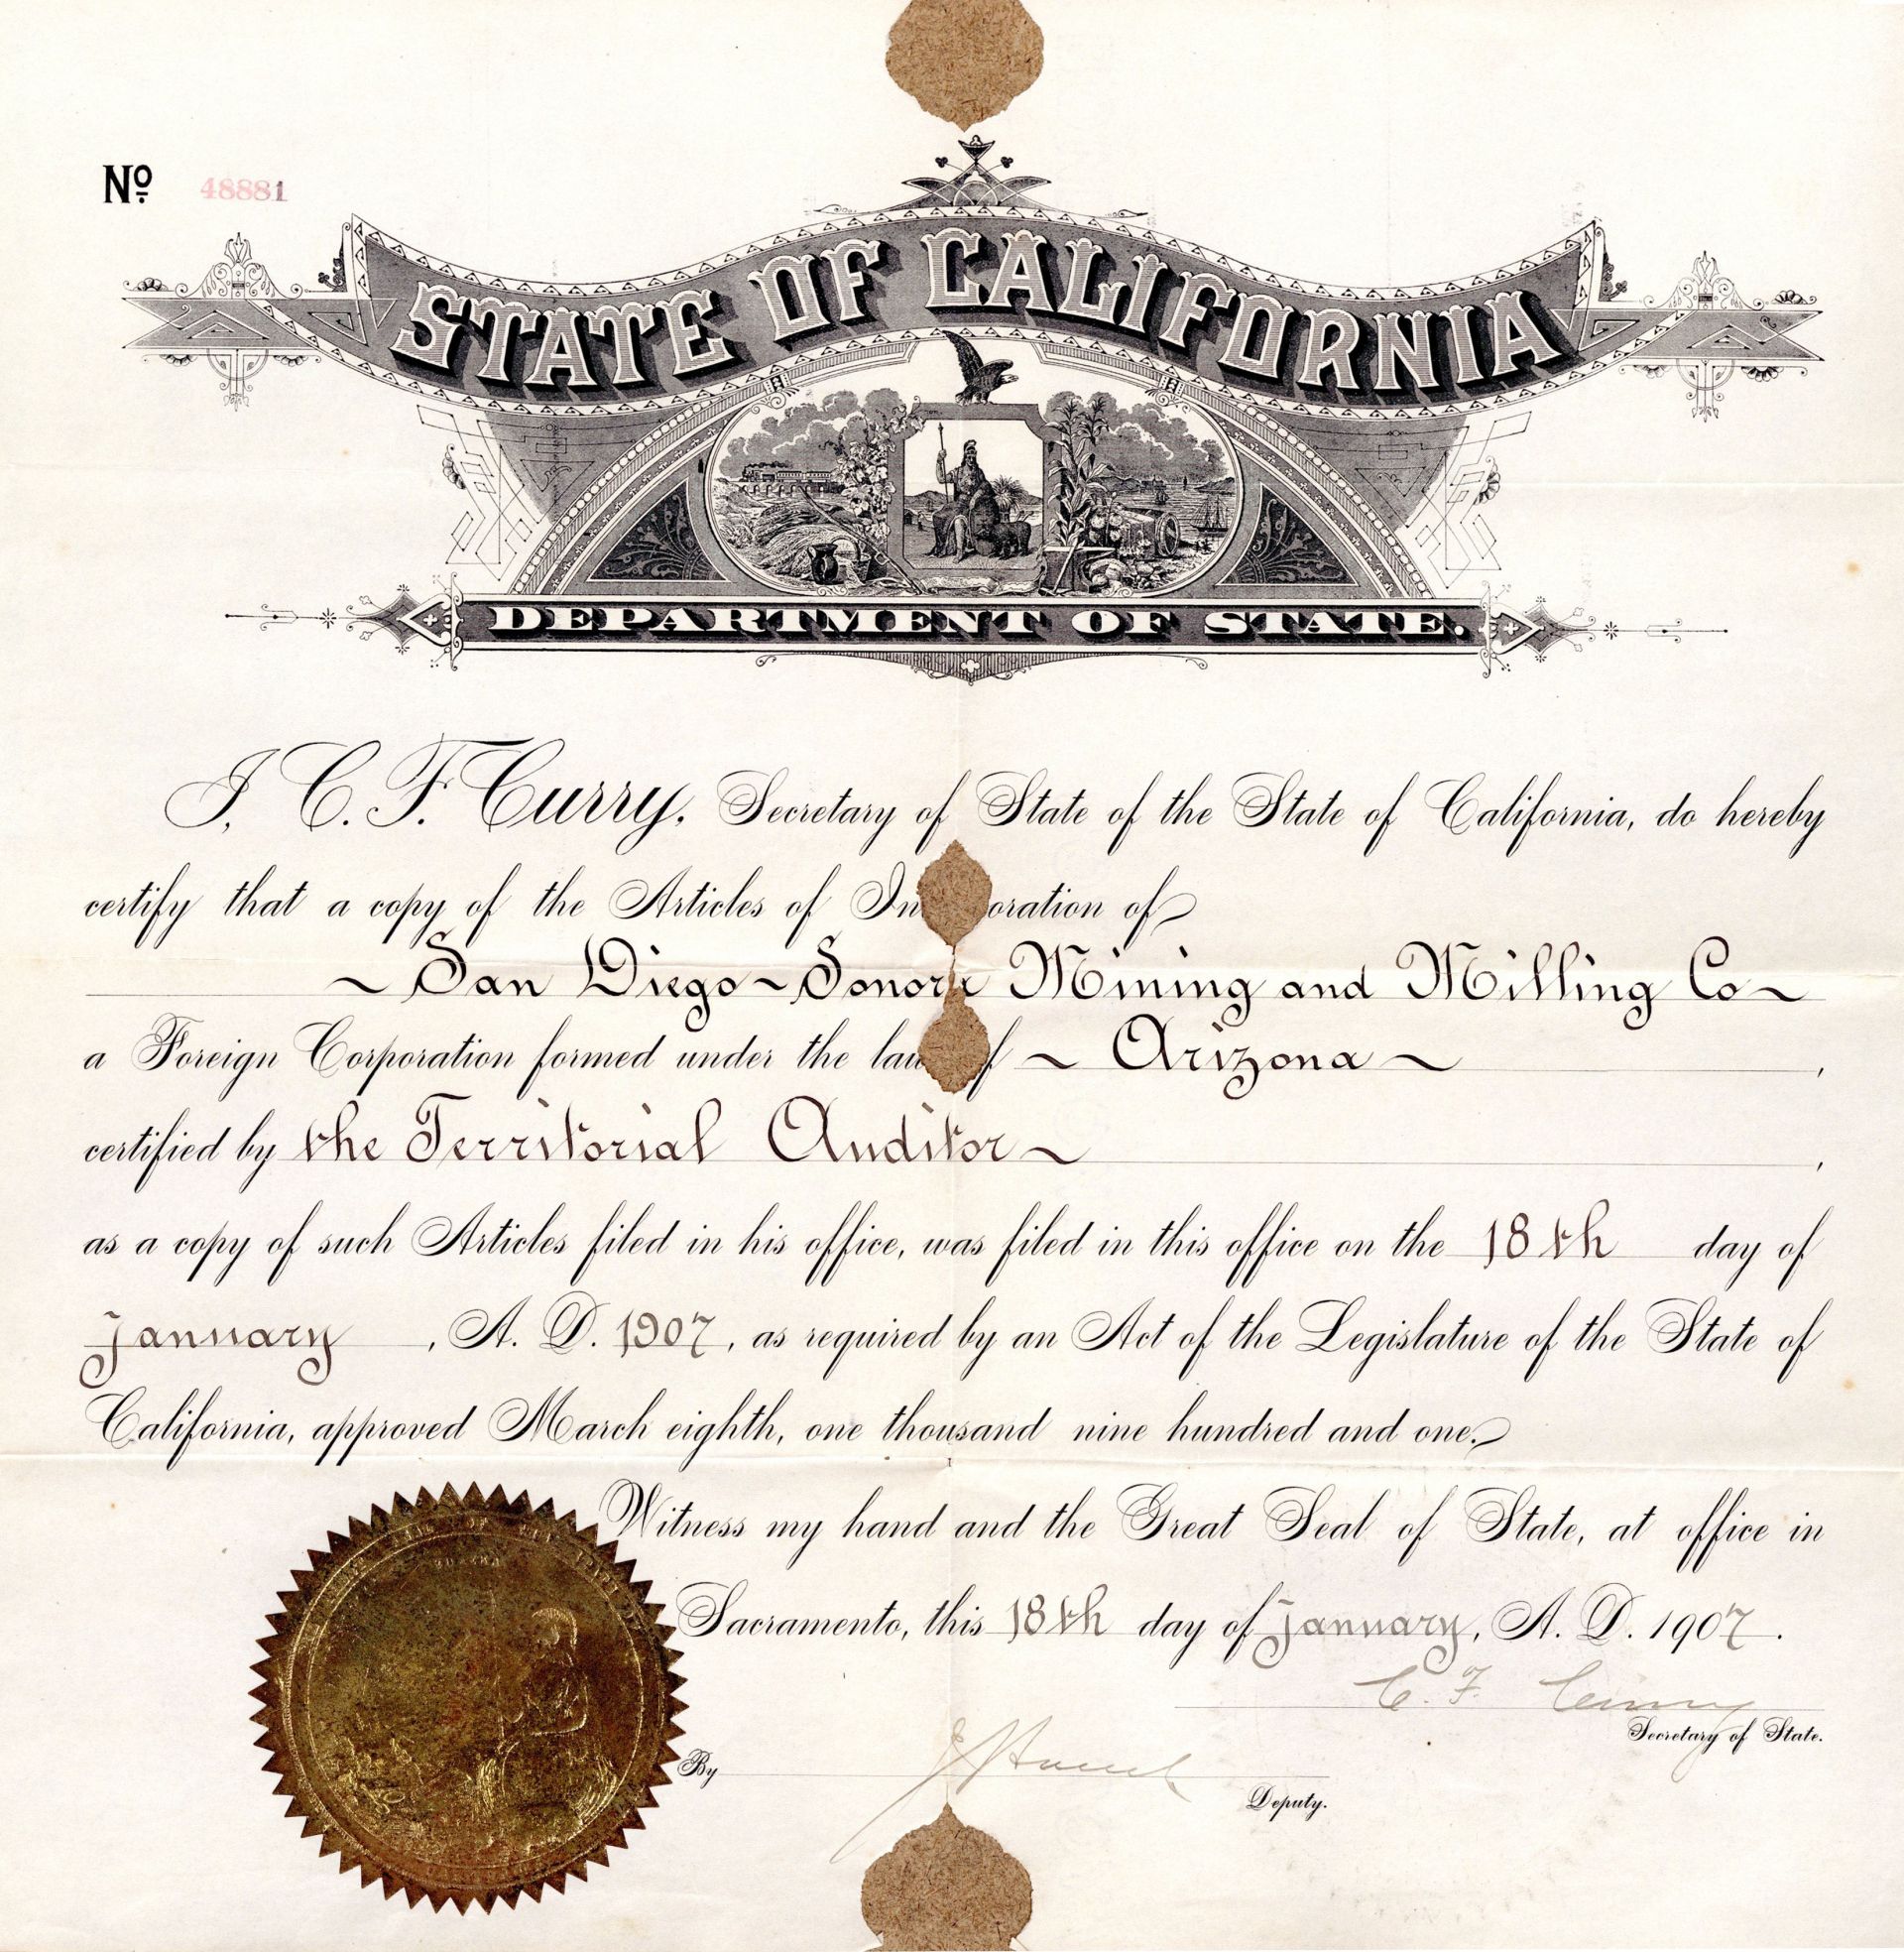 Nº 48881
STATE OF CALIFORNIA
DEPARTMENT OF STATE.
I, C. F. Curry, Secretary of State of the State of California, do hereby
certify that a copy of the Articles of In oration of
~ San Diego ~ Sonora Mining and Milling Co ~
a Foreign Corporation formed under the law f ~ Arizona ~ ,
certified by the Territorial Auditor ~ ,
as a copy of such Articles filed in his office, was filed in this office on the 18th day of
January , A. D. 1907, as required by an Act of the Legislature of the State of
California, approved March eighth, one thousand nine hundred and one.
Witness my hand and the Great Seal of State, at office in
Sacramento, this 18th day of January, A. D. 1907.
C. F. Curry
Secretary of State.
By
Deputy.